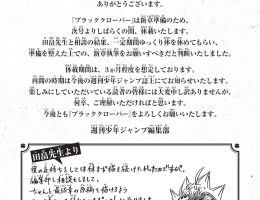 ありがとうございます。
『ブラッククローバー』は新章準備のため、
次号よりしばらくの間、休載いたします。
田畠先生と相談の結果、一定期間ゆっくり休を休めてもらい、
準備を整えた上での、新章執筆をお願いすべきだと判断いたしました。
休載期間は、3ヵ月程度を想定しております。
再開の時期は今後の週刊少年ジャンプ誌上にてお知らせいたします。
楽しみにしていただいている読者の皆様には大変申し訳ありませんが、
何卒、ご理解いただければと思います。
今後とも『ブラッククローバー』をよろしくお願いいたします。
週刊少年ジャンプ編集部
田畠先生より
僕の気持ちとしては休まず描き続けたかったのですが、
編集部と相談もしまして、
ちゃんと最終章の原稿を描けるよう